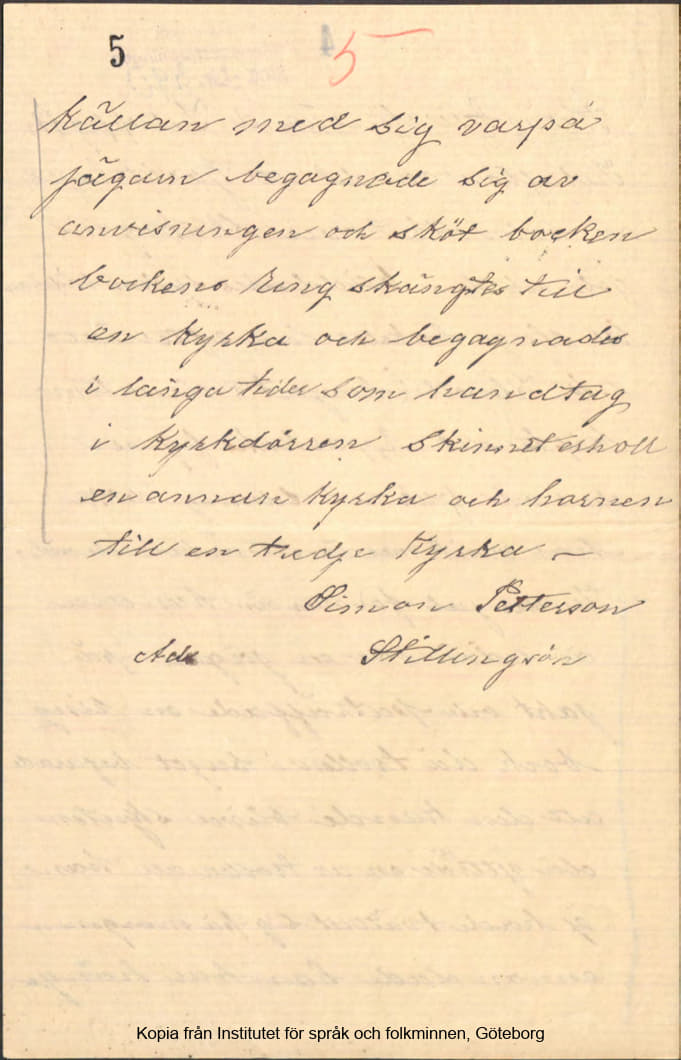 5 5
källan med sig varpå
jägarn begagnade sig av
anvisningen och sköt bocken
bockens ring skängtes till
en kyrka och begagnades
i långa tider som handtag
i kyrkdörren Skinnet erholl
en annan kyrka och hornen
till en tredje kyrka –
Simon Petterson
Ads Stillingsön
Kopia från Institutet för språk och folkminnen, Göteborg